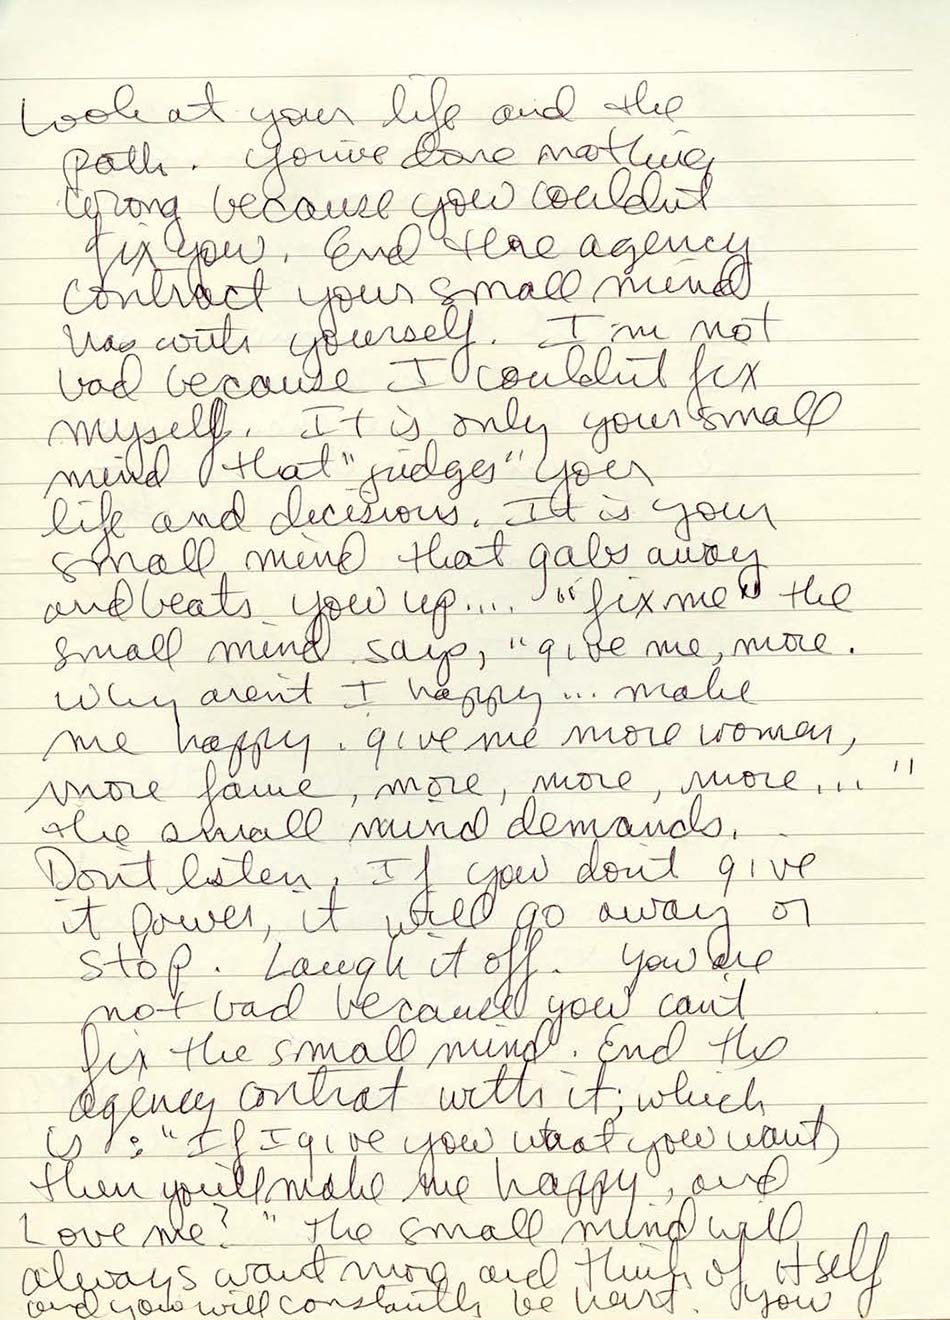 Look at your life and the
path. You've done nothing
wrong because you couldn't
fix you. End the agency
contract your small mind
has with yourself. I'm not
bad because I couldn't fix
myself. It is only your small
mind that "judges" your
life and decisions. It is your
small mind that gabs away
and beats you up.... "fix me" the
small mind says, "give me, more.
Why aren't I happy... make
me happy. give me more women,
more fame, more, more, more..."
the small mind demands.
Don't listen. If you don't give
it power, it will go away or
stop. Laugh it off. You are
not bad because you can't
fix the small mind. End the
agency contrat with it; which
is: "If I give you what you want,
then you'll make me happy, and
Love me?" the small mind will
always want more and think of itself
and you will constantly be hurt. You